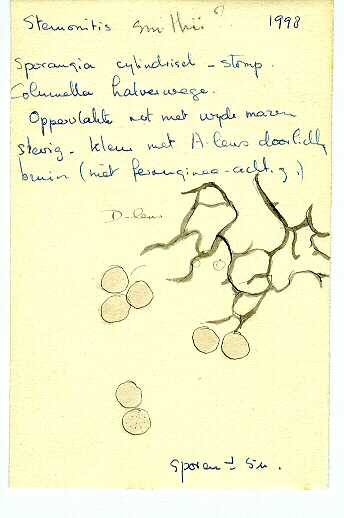 Stemonitis smithii? 1998
Sporangia cylindrisch - stomp.
Columella halverwege.
Oppervlakte net met wyde mazen
stevig - kleur met A-lens doorlicht
bruin (niet ferruginea-achtig.)
D-lens
Sporen ± 5µ.